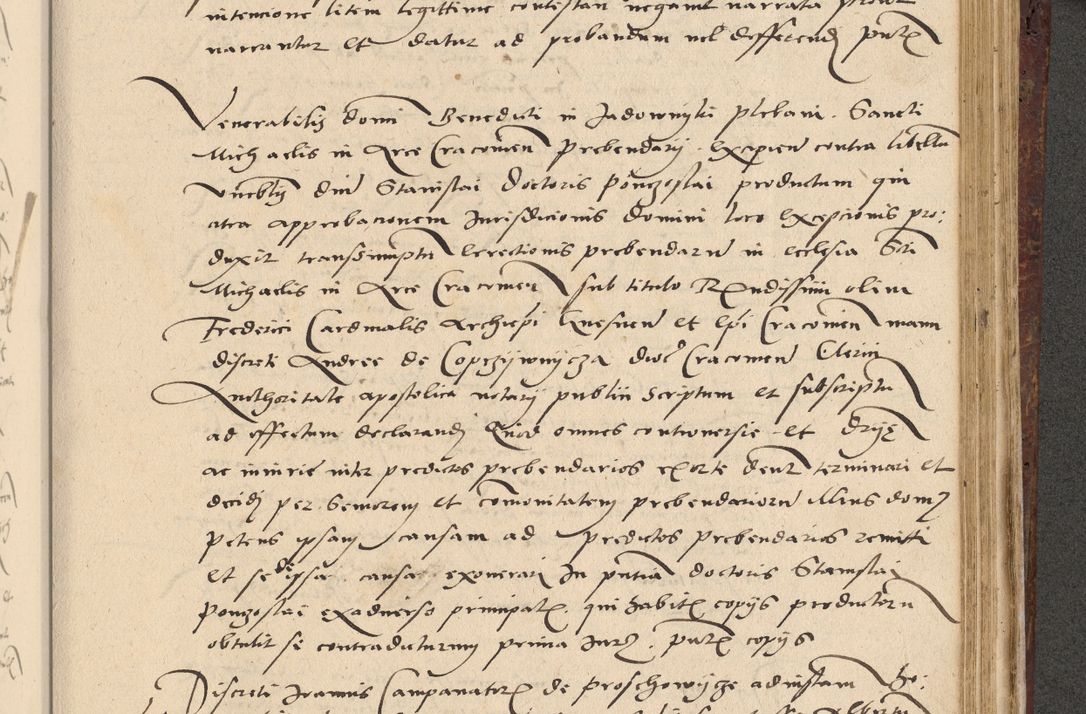 intencione litem legittime contestan negavit narrata prout
narrantur et datur ad probandum vel defferend put
Venerabilis domi Benedicti in Jadowniki plebani Sancti
Michaelis in Arce Cracovien prebendarii excipien contra libellum
Vnebilis dni Stanislai doctoris Ponczoslai productum qui
citra approbacionem Jurisdicionis domini loco excepcionis pro:
duxit transsumptu erectionis prebendaru in ecclesia Scti
Michaelis in Arce Cracovien sub titulo Rendissimi olim
Frederici Cardinalis Archiepi Gnesnen et Epi Cracovien manu
discreti Andree de Copczijwnycza dioc Cracovien Clerici
Authoritate apostolica notarij publici scriptum et subscriptu
ad effectum declarandi Quod omnes controversie et
ac iniurie inter predictos prebendarios exorte dent terminari et
decidi per Seniorem et comonitatem prebendarioru illius domus
petens ipsam causam ad predictos prebendarios remitti
et se de ipsa causa exonerari In pntia doctoris Stanislai
Ponczoslai exadverso principal qui habit copijs productoru
obtulit se contradicturum prima Jur put copijs
Discreti Joannis Campanator de Proschowijcze ad instam